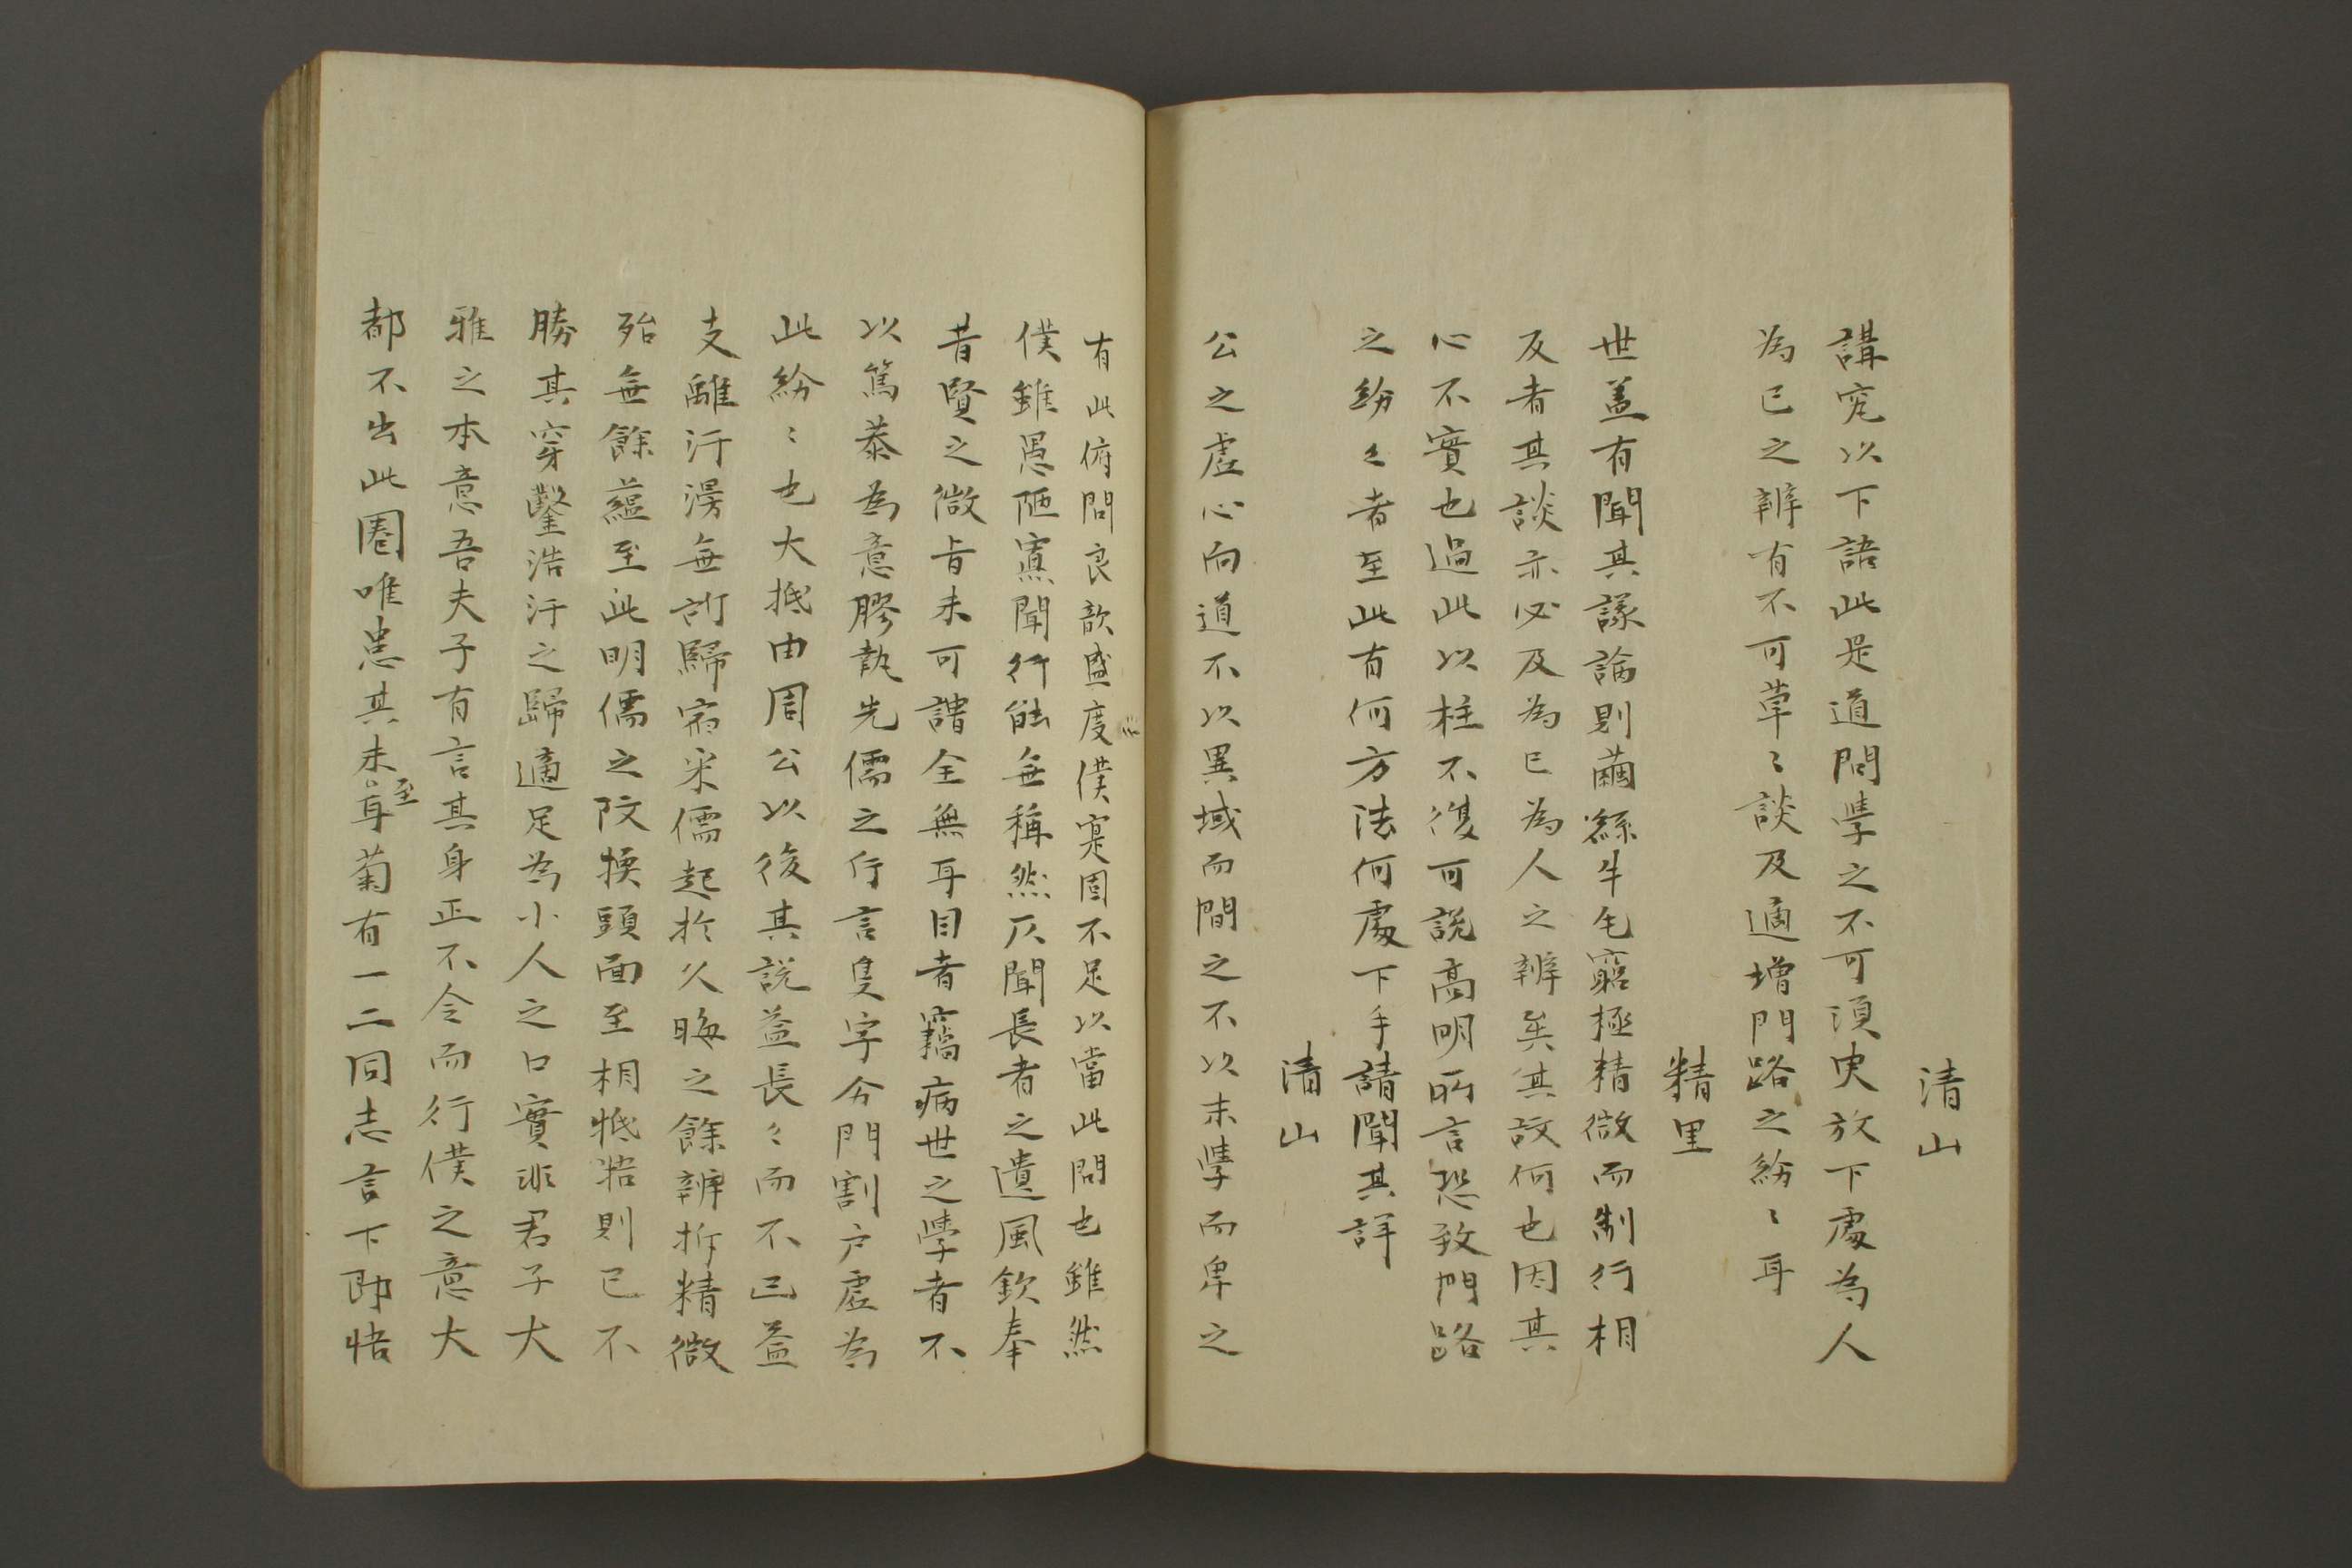 清山
講究以下語此是道問學之不可須臾放下處為人
為己之辨有不可草〻談及適增門路之紛〻耳
精里
世盖有聞其議論則繭絲牛毛窮極精微而制行相
反者其談亦必及為己為人之辨矣其故何也因其
心不實也過此以柱不復可說高明所言恐致門路
之紛々者至此有何方法何處下手請聞其詳
清山
公之虛心向道不以異域而間之不以末學而卑之
有此俯問良歆盛度僕寔固不足以當此問也雖然
僕雖愚陋寡聞行能無稱然仄聞長者之遺風欽奉
昔賢之微旨未可謂全無耳目者竊病世之學者不
以篤恭為意膠執先儒之片言隻字分門割戶虛為
此紛〻也大抵由周公以後其說益長々而不已益
支離汗漫無所歸宿宋儒起於久晦之餘辨析精微
殆無餘蘊至此明儒之改換頭面至相牴牾則已不
勝其穿鑿浩汗之歸適足為小人之口實非君子大
雅之本意吾夫子有言其身正不令而行僕之意大
都不出此圏唯患其未至耳蓟有一二同志言下即悟